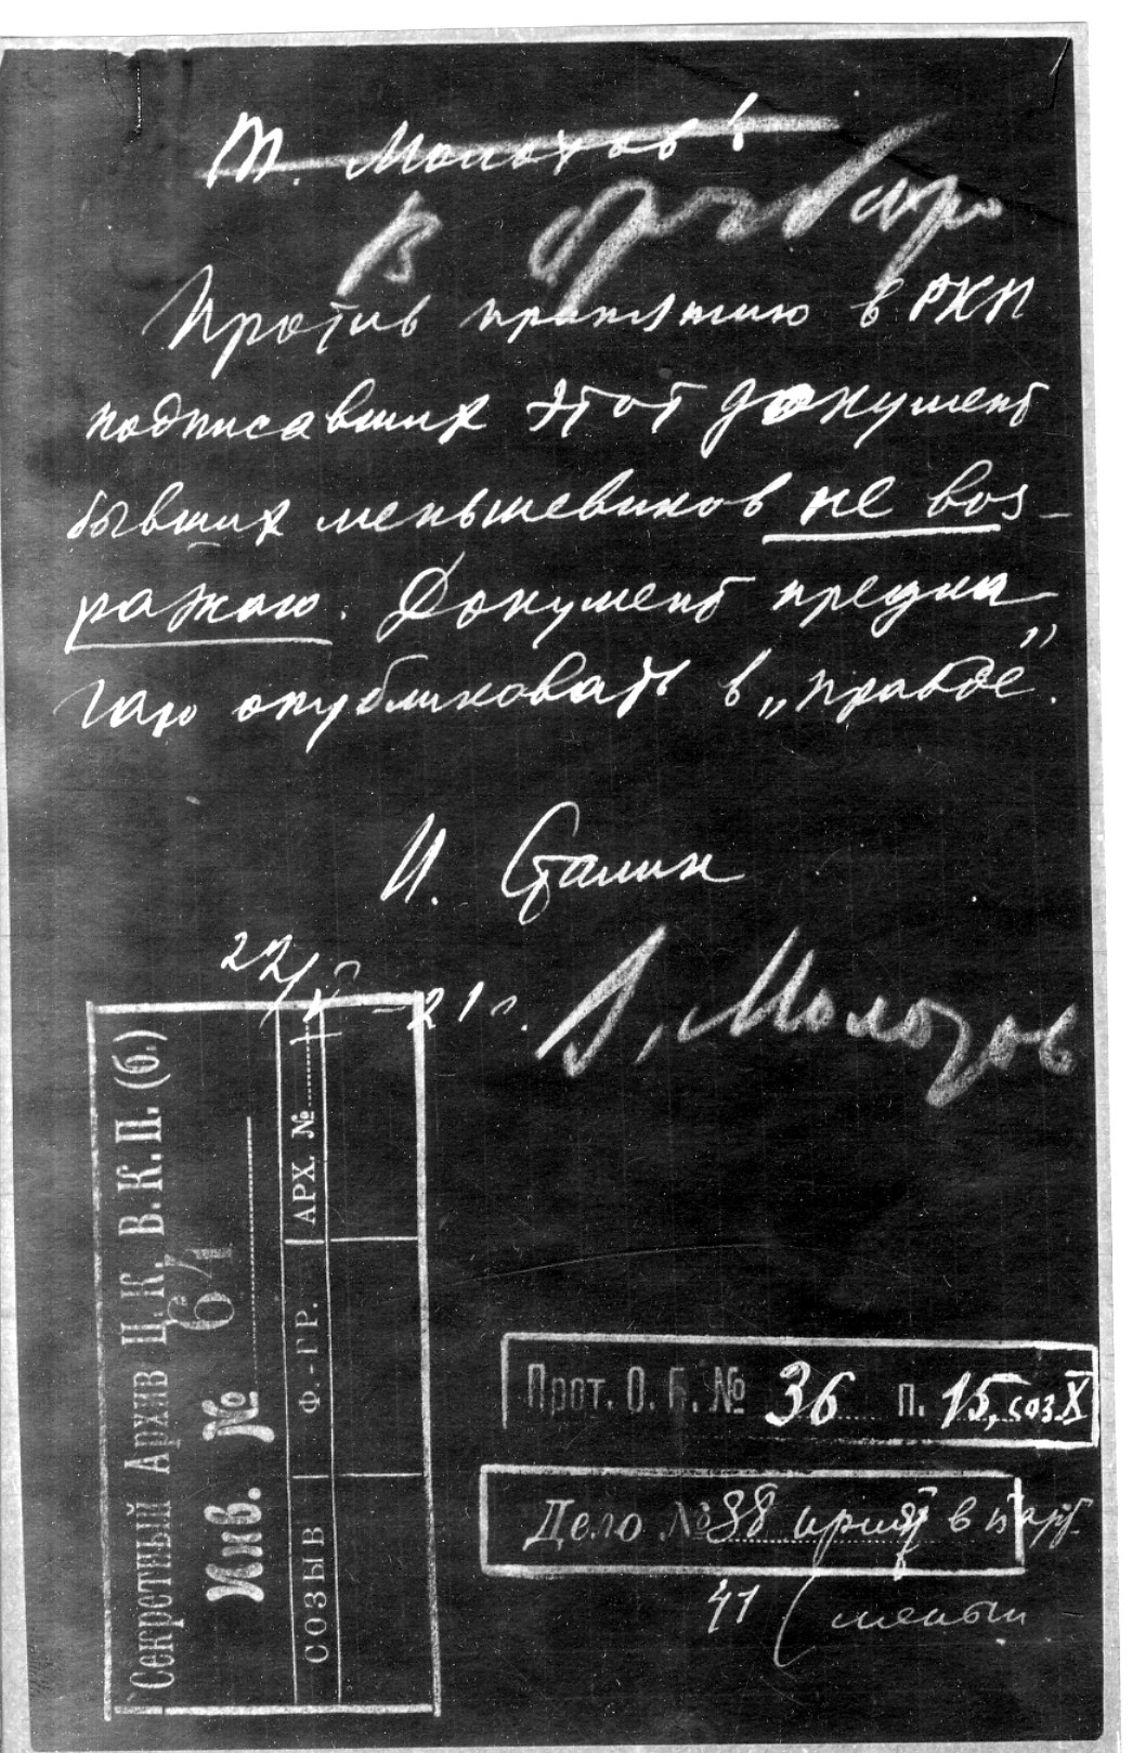 Т. Молотов!
В Оргбюро
Против принятию в РКП
подписавших этот документ
бывших меньшевиков не воз-
ражаю. Документ предла-
гаю опубликовать в „Правде“.
И. Сталин
22/V – 21 г.
В. Молотов
Секретный Архив Ц.К. В.К.П.(б.)
Инв. № 64
СОЗЫВ Ф.-ГР. АРХ. №
Прот. О. Б. № 36 п. 15, соз X
Дело № 38 в парт
41 (меньш